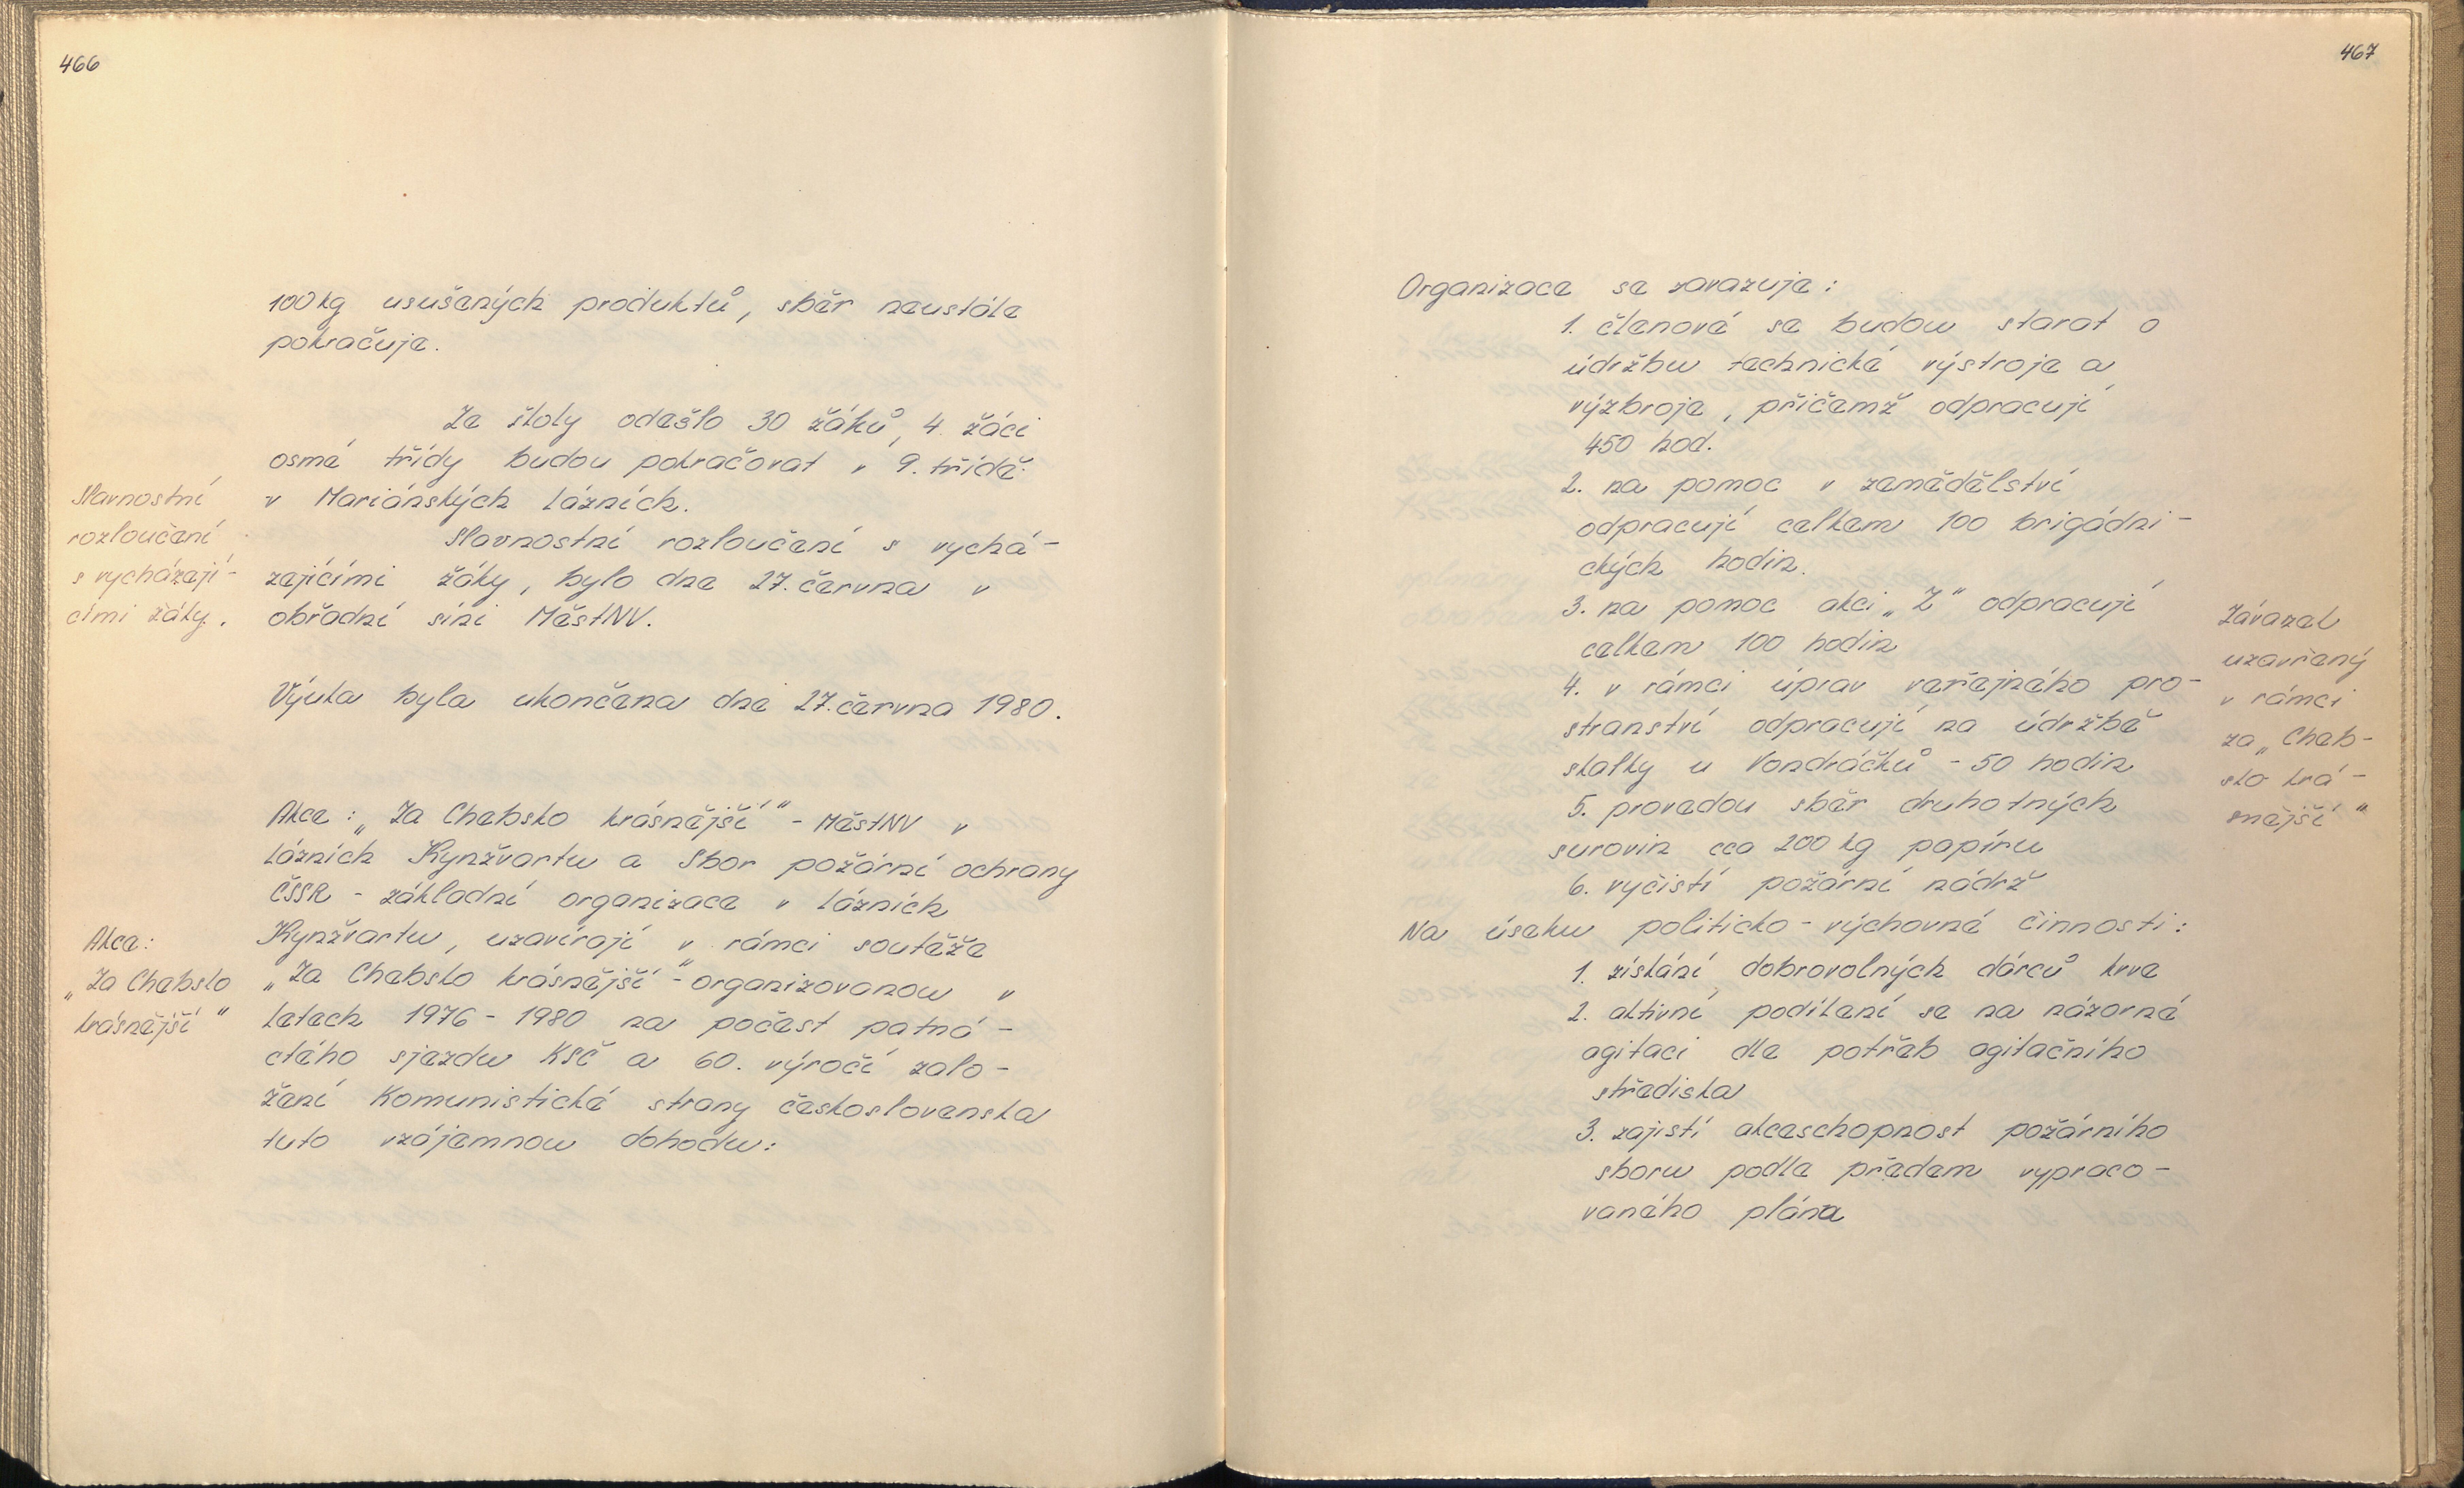 466
100 kg usušených produktů, sběr neustále
pokračuje.
Ze školy odešlo 30 žáků, 4 žáci
osmé třídy budou pokračovat v 9. třídě
v Mariánských Lázních.
Slavnostní
rozloučení
s vycházejí-
cími žáky.
Slavnostní rozloučení s vychá-
zejícími žáky, bylo dne 27. června v
obřadní síni MěstNV.
Výuka byla ukončena dne 27. června 1980.
Akce: „Za Chebsko krásnější" - MěstNV v
Lázních Kynžvartu a Sbor požární ochrany
ČSSR - základní organizace v Lázních
Kynžvartu, uzavírají v rámci soutěže
„Za Chebsko krásnější" - organizovanou v
letech 1976 - 1980 na počest patná-
ctého sjezdu KSČ a 60. výročí zalo-
žení Komunistické strany československa
tuto vzájemnou dohodu:
Akce:
„Za Chebsko
krásnější"
467
Organizace se zavazuje:
1. členové se budou starat o
údržbu technické výstroje a
výzbroje, přičemž odpracují
450 hod.
2. na pomoc v zemědělství
odpracují celkem 100 brigádni-
ckých hodin.
3. na pomoc akci „Z" odpracují
celkem 100 hodin
4. v rámci úprav veřejného pro-
stranství odpracují na údržbě
skalky u Vondráčků - 50 hodin
5. provedou sběr druhotných
surovin cca 200 kg papíru
6. vyčistí požární nádrž
Závazek
uzavřený
v rámci
za „Cheb-
sko krá-
snější"
Na úseku politicko-výchovné činnosti:
1. získání dobrovolných dárců krve
2. aktivní podílení se na názorné
agitaci dle potřeb agitačního
střediska
3. zajistí akceschopnost požárního
sboru podle předem vypraco-
vaného plána